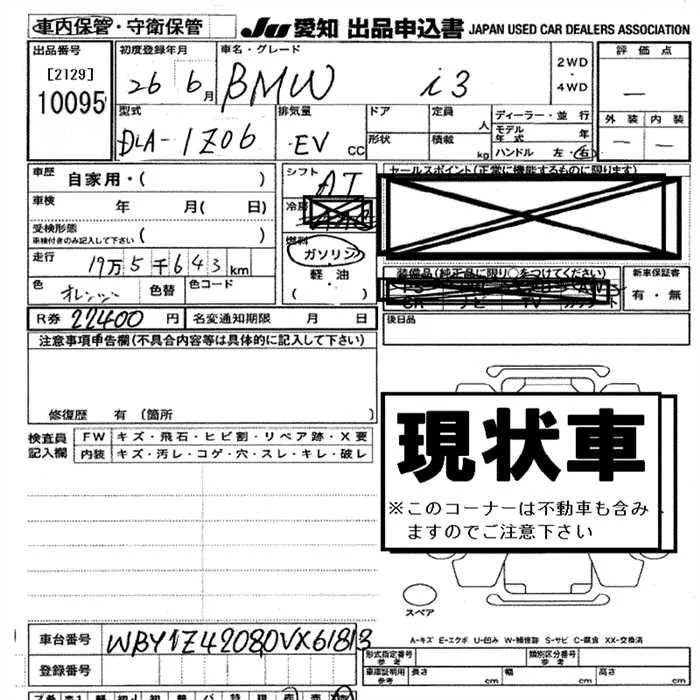 車内保管・守衛保管
Ju愛知 出品申込書 JAPAN USED CAR DEALERS ASSOCIATION
出品番号 初度登録年月 車名・グレード 2WD・4WD 評価点
[2129] 10095 26 6月 BMW i3 —
型式 排気量 ドア 定員 人 ディーラー・並行 外装 内装
DLA-1Z06 EV CC 形状 積載 kg モデル年式 年 — —
ハンドル 左・右
車歴 自家用・( ) シフト AT セールスポイント(正常に機能するものに限ります)
車検 年 月( 日) 冷房
受検形態 車検付きのみ記入して下さい ( ) 燃料
走行 19万5千643km ガソリン・軽・油 ( ) 装備品(純正品に限り○をつけてください) 新車保証書
色 オレンジ 色替 色コード ナビ TV 有・無
R券 22400円 名変通知期限 月 日 後日品
注意事項申告欄(不具合内容等は具体的に記入して下さい)
修復歴 有 (箇所 )
検査員記入欄 FW キズ・飛石・ヒビ割・リペア跡・X要
内装 キズ・汚レ・コゲ・穴・スレ・キレ・破レ
現状車
※このコーナーは不動車も含み
ますのでご注意下さい
スペア
A-キズ E-エクボ U-凹み W-補修跡 S-サビ C-腐食 XX-交換済
車台番号 WBY1Z42080VX61813
登録番号
形式指定番号 参考 類別区分番号 参考
車庫証明用 参考 長さ cm 幅 cm 高さ cm